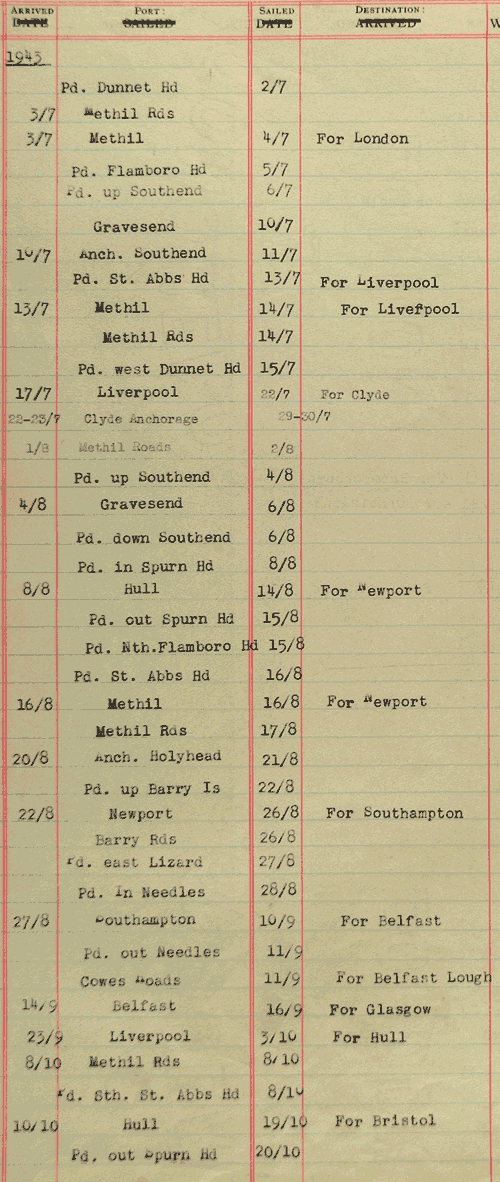 ARRIVED PORT: SAILED DESTINATION:
DATE SAILED DATE ARRIVED W
1943
Pd. Dunnet Hd 2/7
3/7 Methil Rds
3/7 Methil 4/7 For London
Pd. Flamboro Hd 5/7
Pd. up Southend 6/7
Gravesend 10/7
10/7 Anch. Southend 11/7
Pd. St. Abbs Hd 13/7 For Liverpool
13/7 Methil 14/7 For Liverpool
Methil Rds 14/7
Pd. west Dunnet Hd 15/7
17/7 Liverpool 22/7 For Clyde
22-23/7 Clyde Anchorage 29-30/7
1/8 Methil Roads 2/8
Pd. up Southend 4/8
4/8 Gravesend 6/8
Pd. down Southend 6/8
Pd. in Spurn Hd 8/8
8/8 Hull 14/8 For Newport
Pd. out Spurn Hd 15/8
Pd. Nth.Flamboro Hd 15/8
Pd. St. Abbs Hd 16/8
16/8 Methil 16/8 For Newport
Methil Rds 17/8
20/8 Anch. Holyhead 21/8
Pd. up Barry Is 22/8
22/8 Newport 26/8 For Southampton
Barry Rds 26/8
Pd. east Lizard 27/8
Pd. In Needles 28/8
27/8 Southampton 10/9 For Belfast
Pd. out Needles 11/9
Cowes Roads 11/9 For Belfast Lough
14/9 Belfast 16/9 For Glasgow
23/9 Liverpool 3/10 For Hull
8/10 Methil Rds 8/10
Pd. Sth. St. Abbs Hd 8/10
10/10 Hull 19/10 For Bristol
Pd. out Spurn Hd 20/10